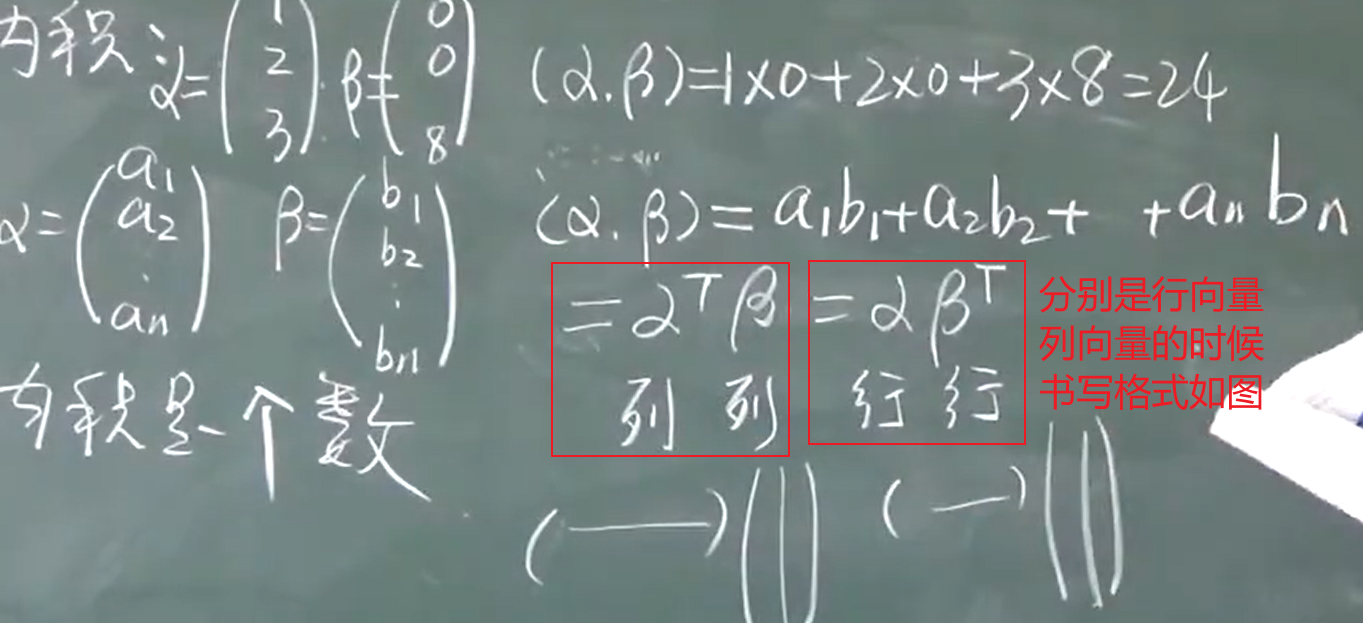 内积: α=(1 2 3). β=(0 0 8) (α.β)=1×0+2×0+3×8=24
α=(a₁ a₂ ⋮ aₙ) β=(b₁ b₂ ⋮ bₙ) (α.β)=a₁b₁+a₂b₂+ +aₙbₙ
=αᵀβ =αβᵀ
列 列 行 行
分别是行向量
列向量的时候
书写格式如图
内积是一个数
(—)(|) (—)(|)